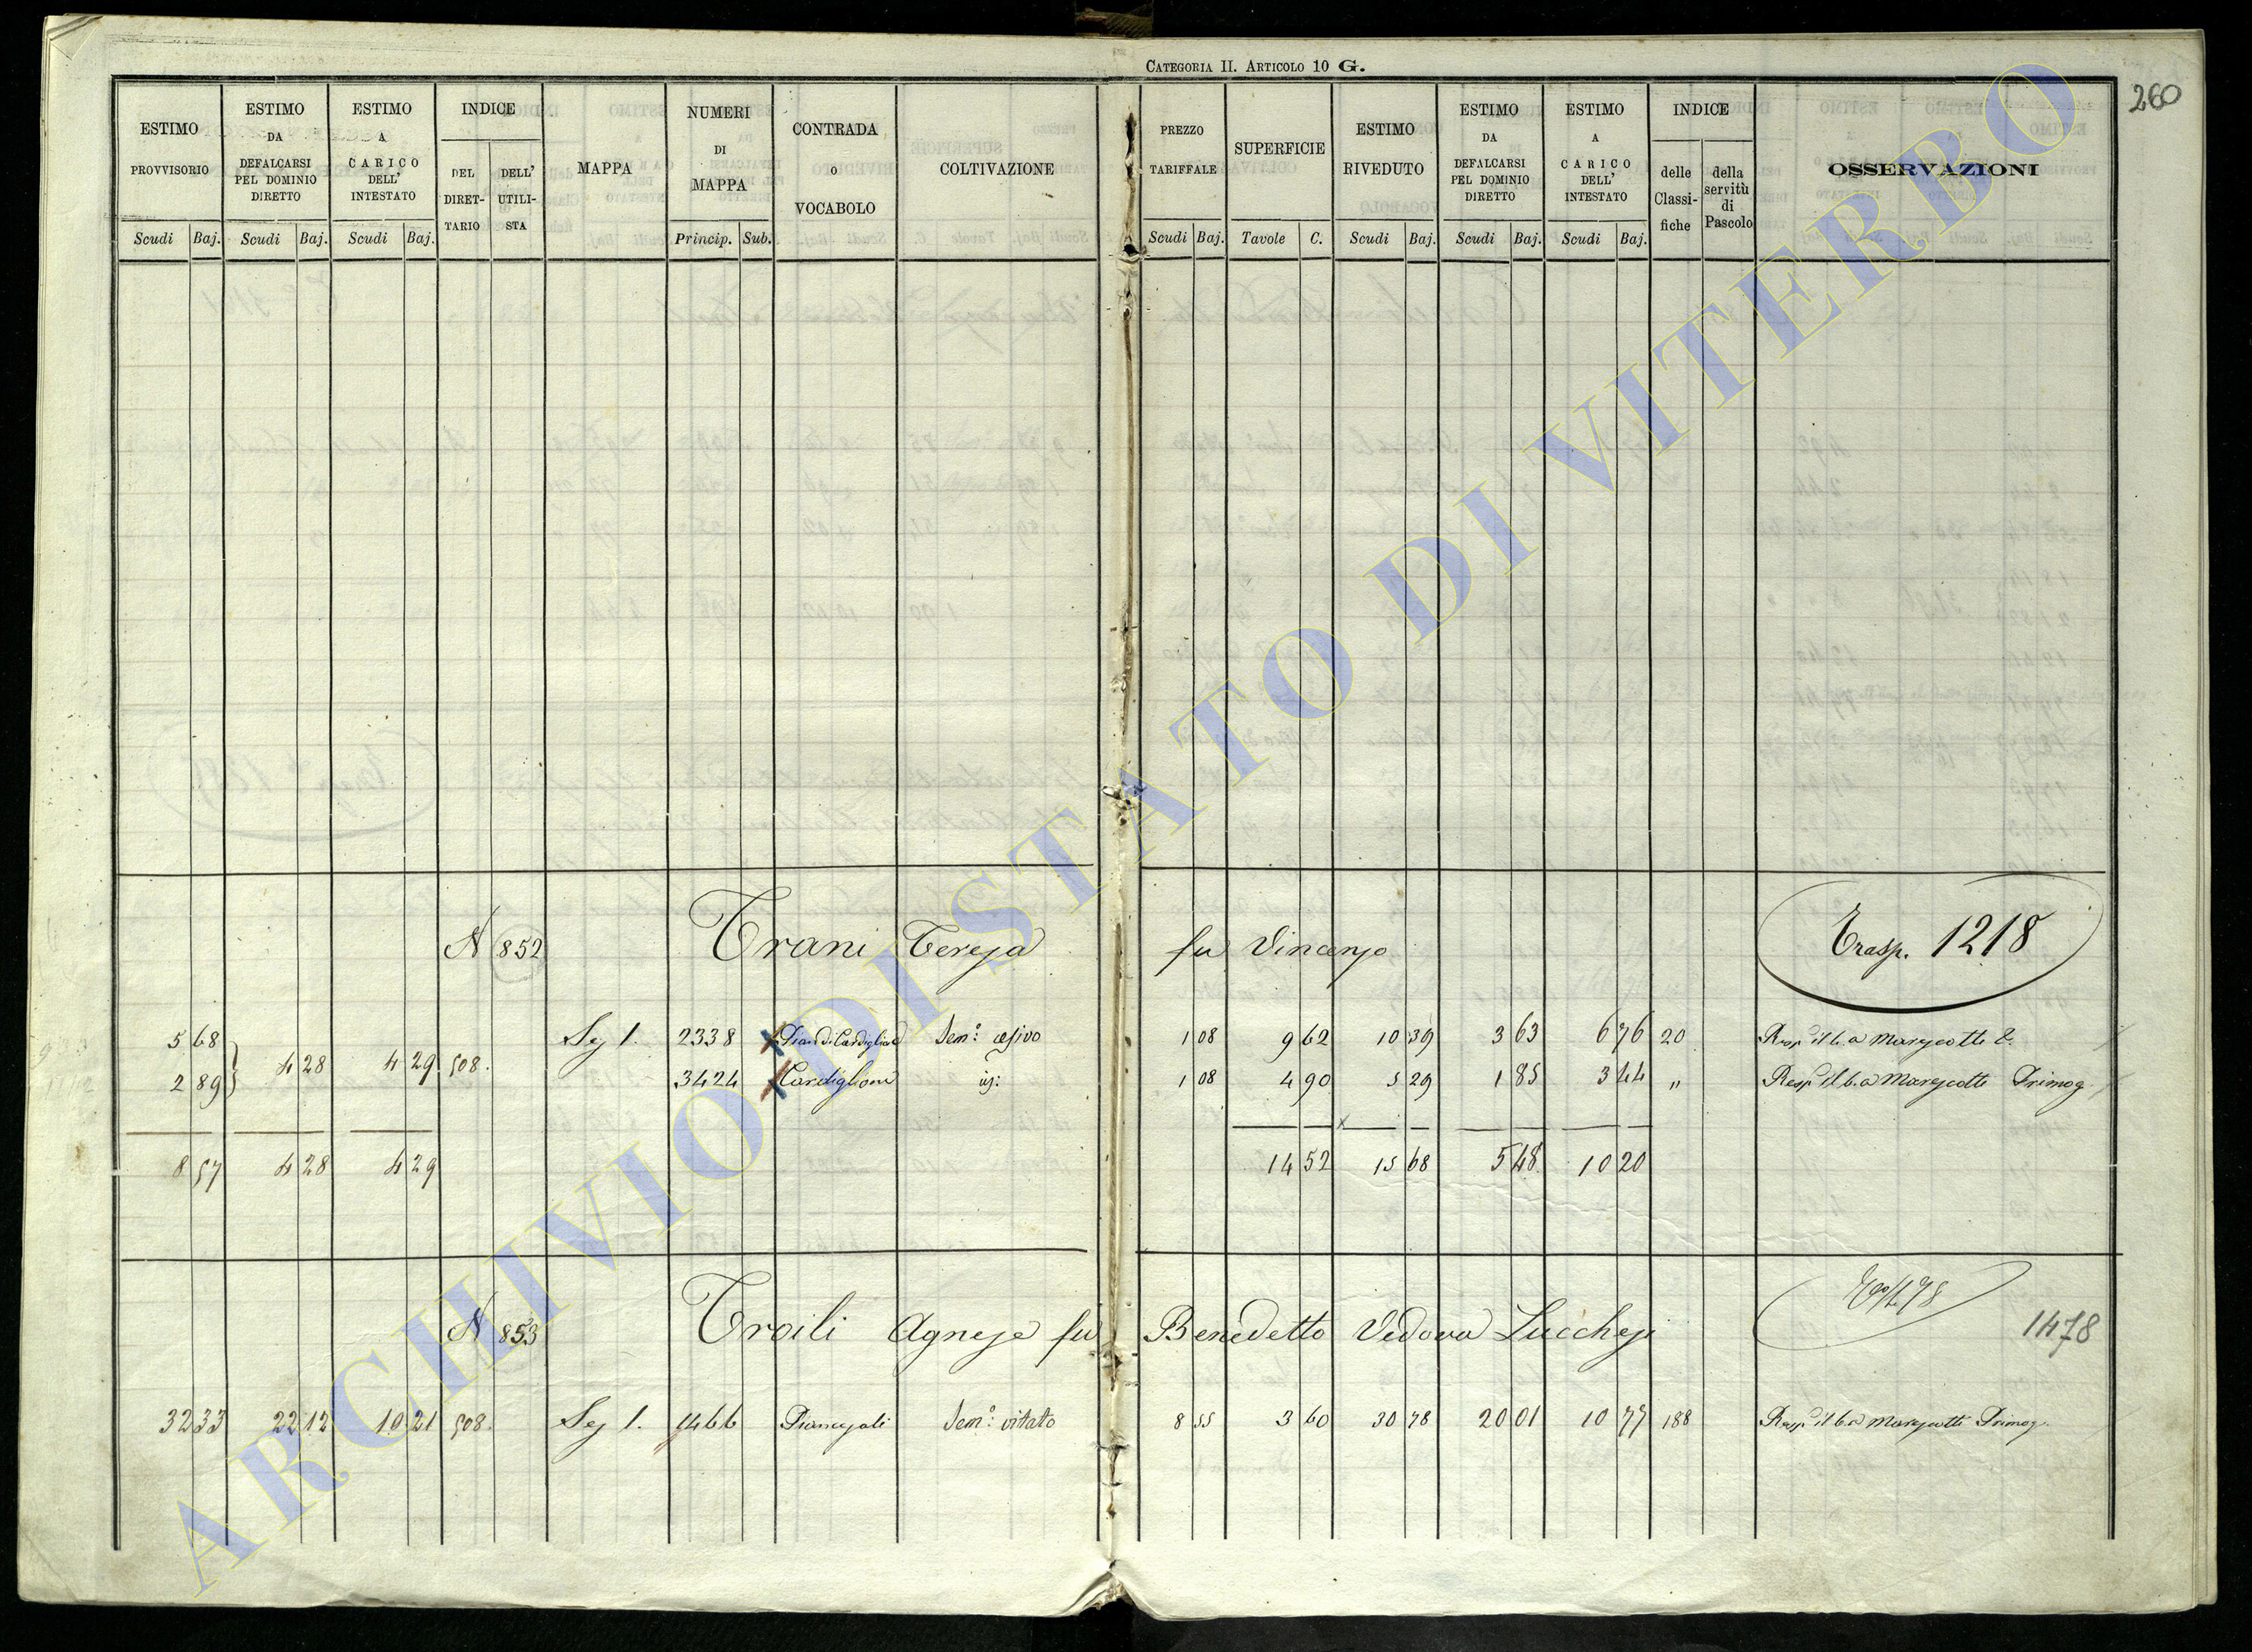 CATEGORIA II. ARTICOLO 10 G.
260
ESTIMO PROVVISORIO
ESTIMO DA DEFALCARSI PEL DOMINIO DIRETTO
ESTIMO A CARICO DELL' INTESTATO
INDICE
DEL DIRETTARIO
DELL' UTILISTA
MAPPA
NUMERI DI MAPPA
CONTRADA o VOCABOLO
COLTIVAZIONE
PREZZO TARIFFALE
SUPERFICIE
ESTIMO RIVEDUTO
ESTIMO DA DEFALCARSI PEL DOMINIO DIRETTO
ESTIMO A CARICO DELL' INTESTATO
INDICE
delle Classifiche
della servitù di Pascolo
OSSERVAZIONI
Scudi Baj. Scudi Baj. Scudi Baj. Princip. Sub. Scudi Baj. Tavole C. Scudi Baj. Scudi Baj. Scudi Baj.
N 852 Trani Teresa fu Vincenzo Trasp. 1218
5 68 Sez 1. 2338 Pian di Cardiglione Sem.º cesivo 1 08 9 62 10 39 3 63 6 76 20 Resp il b. a Marescotti &.
4 28 4 29 508.
2 89 3424 Cardiglione id: 1 08 4 90 5 29 1 85 3 44 " Resp il b. a Marescotti Primog.
8 57 4 28 4 29 14 52 15 68 5 48 10 20
N 853 Troili Agnese fu Benedetto Vedova Lucchesi 1478
32 33 22 12 10 21 508. Sez 1. 1466 Piancasali Sem.º vitato 8 55 3 60 30 78 20 01 10 77 188 Resp il b. a Marescotti Primog.
ARCHIVIO DI STATO DI VITERBO